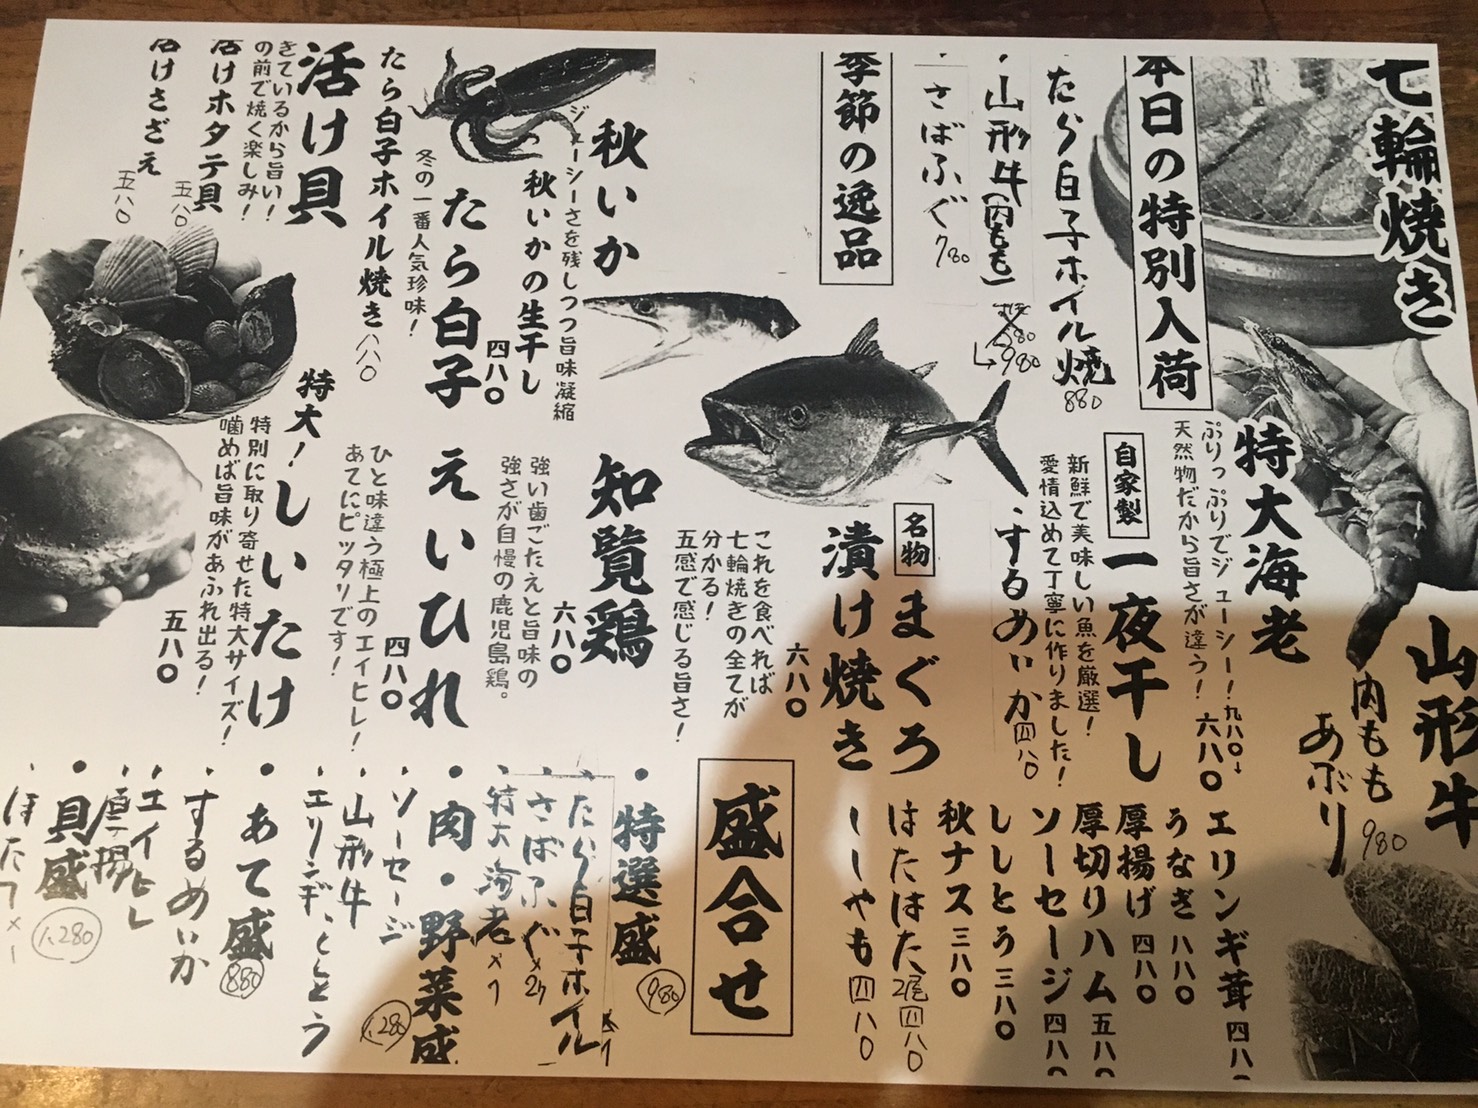 七輪焼き
本日の特別入荷
・たら白子ホイル焼
880
・山形牛(内もも)
→980
・さばふぐ
780
季節の逸品
秋いか
ジューシーさを残しつつ旨味凝縮
秋いかの生干し
四八〇
たら白子
冬の一番人気珍味!
たら白子ホイル焼き 八八〇
活け貝
きているから旨い!
の前で焼く楽しみ!
活けホタテ貝
五八〇
活けさざえ
五八〇
特大海老
ぷりっぷりでジューシー! 九八〇→
天然物だから旨さが違う! 六八〇
自家製
一夜干し
新鮮で美味しい魚を厳選!
愛情込めて丁寧に作りました!
・するめいか 四八〇
名物
まぐろ
漬け焼き
六八〇
これを食べれば
七輪焼きの全てが
分かる!
五感で感じる旨さ!
知覧鶏
六八〇
強い歯ごたえと旨味の
強さが自慢の鹿児島鶏。
えいひれ
四八〇
ひと味違う極上のエイヒレ!
あてにピッタリです!
特大!しいたけ
特別に取り寄せた特大サイズ!
噛めば旨味があふれ出る!
五八〇
山形牛
内もも
あぶり
980
エリンギ茸 四八
うなぎ 八八〇
厚揚げ 四八〇
厚切りハム 五八
ソーセージ 四八
ししとう 三八〇
秋ナス 三八〇
はたはた 2尾 四八〇
ししゃも 四八〇
盛合せ
・特選盛
980
・たら白子ホイル
・さばふぐ×2
・特大海老×1
・肉・野菜盛
1,280
・ソーセージ
・山形牛
・エリンギ、ししとう
・あて盛
880
・するめいか
・エイヒレ
・厚揚
・貝盛
1,280